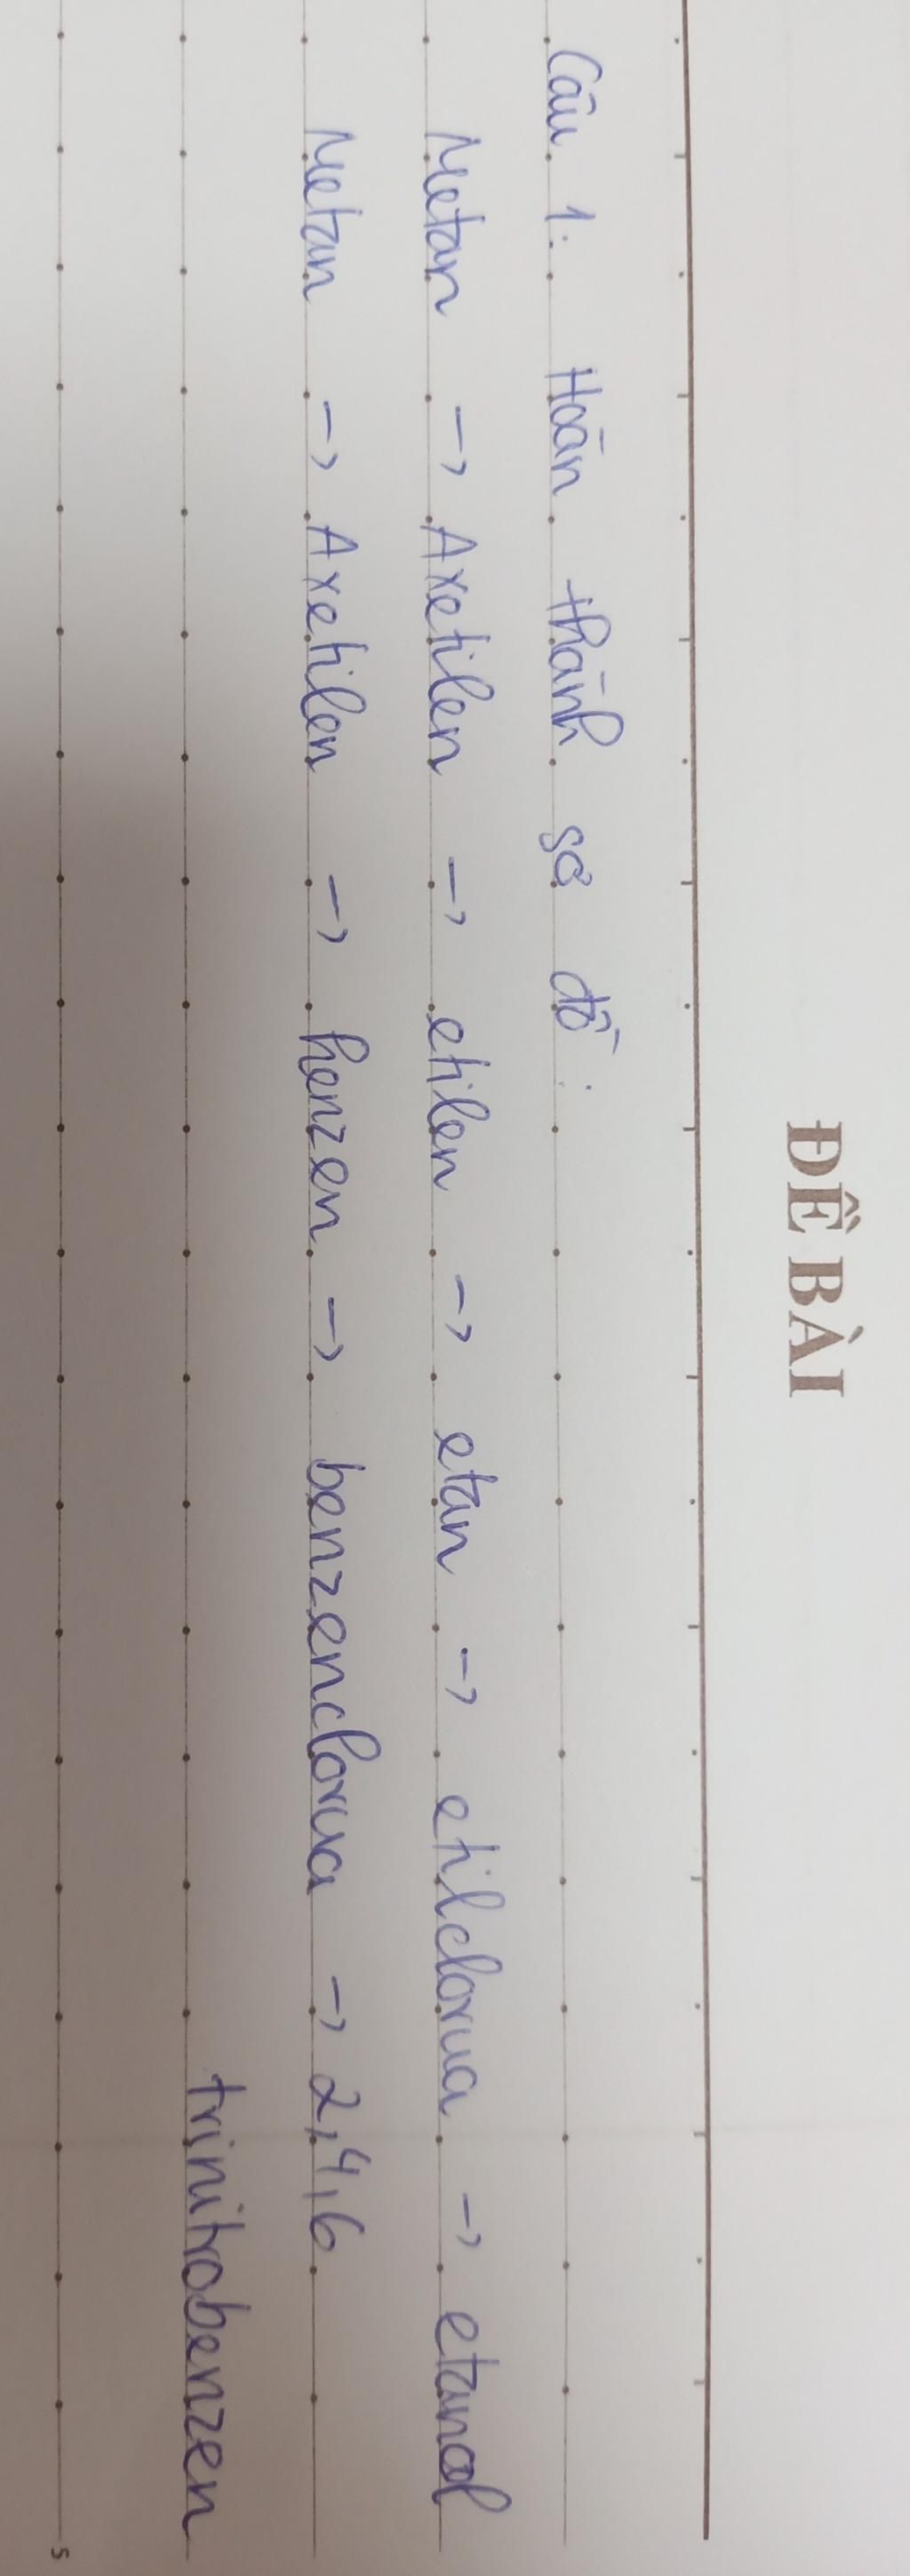 ĐỀ BÀI
Câu 1: Hoàn thành sơ đồ:
Metan → Axetilen → etilen → etan → etilclorua → etanol
Metan → Axetilen → henzen → benzenclorua → 2,4,6
trinitrobenzen
5